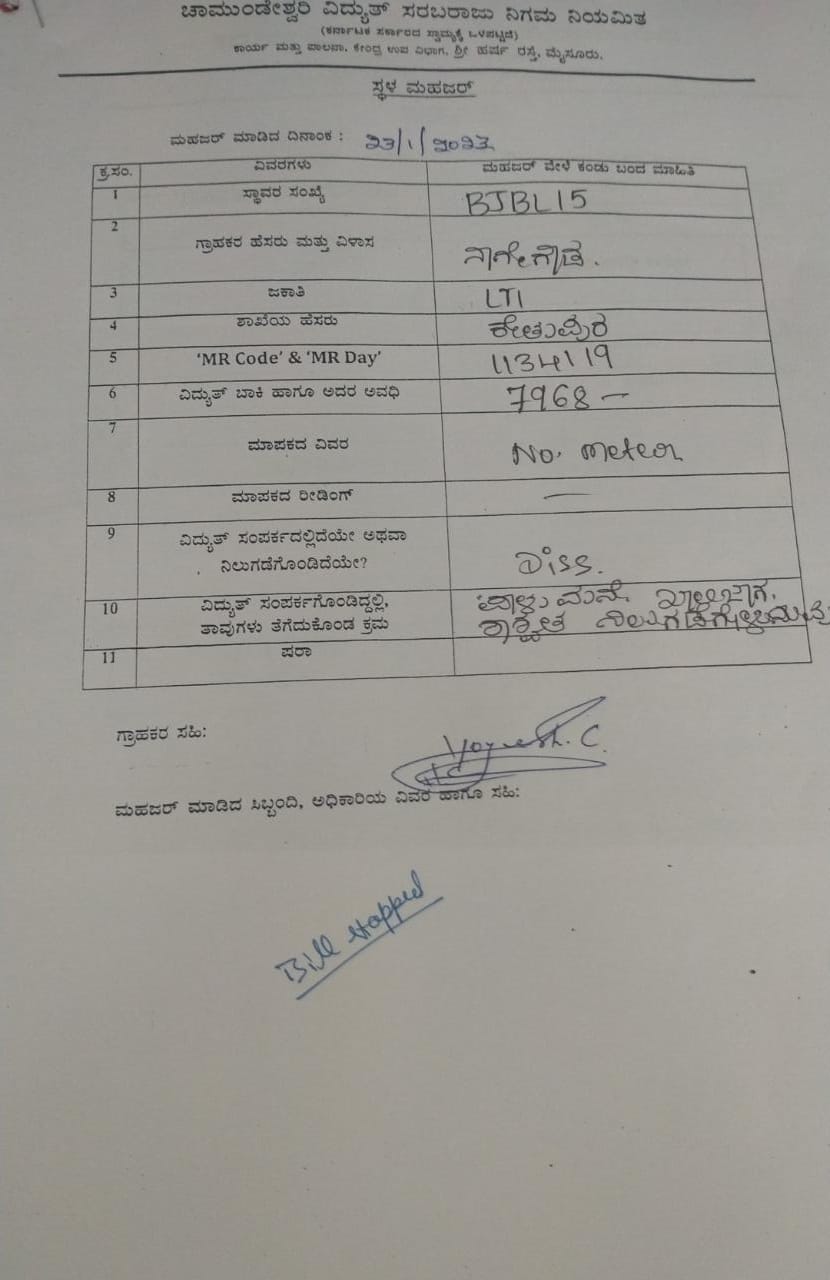 ಚಾಮುಂಡೇಶ್ವರಿ ವಿದ್ಯುತ್ ಸರಬರಾಜು ನಿಗಮ ನಿಯಮಿತ
(ಕರ್ನಾಟಕ ಸರ್ಕಾರದ ಸ್ವಾಮ್ಯಕ್ಕೆ ಒಳಪಟ್ಟಿದೆ)
ಕಾರ್ಯ ಮತ್ತು ಪಾಲನಾ, ಕೇಂದ್ರ ಉಪ ವಿಭಾಗ, ಶ್ರೀ ಹರ್ಷ ರಸ್ತೆ, ಮೈಸೂರು.
ಸ್ಥಳ ಮಹಜರ್
ಮಹಜರ್ ಮಾಡಿದ ದಿನಾಂಕ :
ಕ್ರ.ಸಂ. ವಿವರಗಳು ಮಹಜರ್ ವೇಳೆ ಕಂಡು ಬಂದ ಮಾಹಿತಿ
1 ಸ್ಥಾವರ ಸಂಖ್ಯೆ BJBL15
2 ಗ್ರಾಹಕರ ಹೆಸರು ಮತ್ತು ವಿಳಾಸ ನಾಗೇಗೌಡ.
3 ಜಕಾತಿ LT1
4 ಶಾಖೆಯ ಹೆಸರು
5 'MR Code' & 'MR Day' 1134119
6 ವಿದ್ಯುತ್ ಬಾಕಿ ಹಾಗೂ ಅದರ ಅವಧಿ 7968 —
7 ಮಾಪಕದ ವಿವರ No. meteor
8 ಮಾಪಕದ ರೀಡಿಂಗ್ —
9 ವಿದ್ಯುತ್ ಸಂಪರ್ಕದಲ್ಲಿದೆಯೇ ಅಥವಾ
ನಿಲುಗಡೆಗೊಂಡಿದೆಯೇ? Diss.
10 ವಿದ್ಯುತ್ ಸಂಪರ್ಕಗೊಂಡಿದ್ದಲ್ಲಿ, ಪಾಳು ಮನೆ
ತಾವುಗಳು ತೆಗೆದುಕೊಂಡ ಕ್ರಮ ಶಾಶ್ವತ
11 ಷರಾ
ಗ್ರಾಹಕರ ಸಹಿ:
Yogesh. C.
ಮಹಜರ್ ಮಾಡಿದ ಸಿಬ್ಬಂದಿ, ಅಧಿಕಾರಿಯ ವಿವರ ಹಾಗೂ ಸಹಿ:
Bill stopped